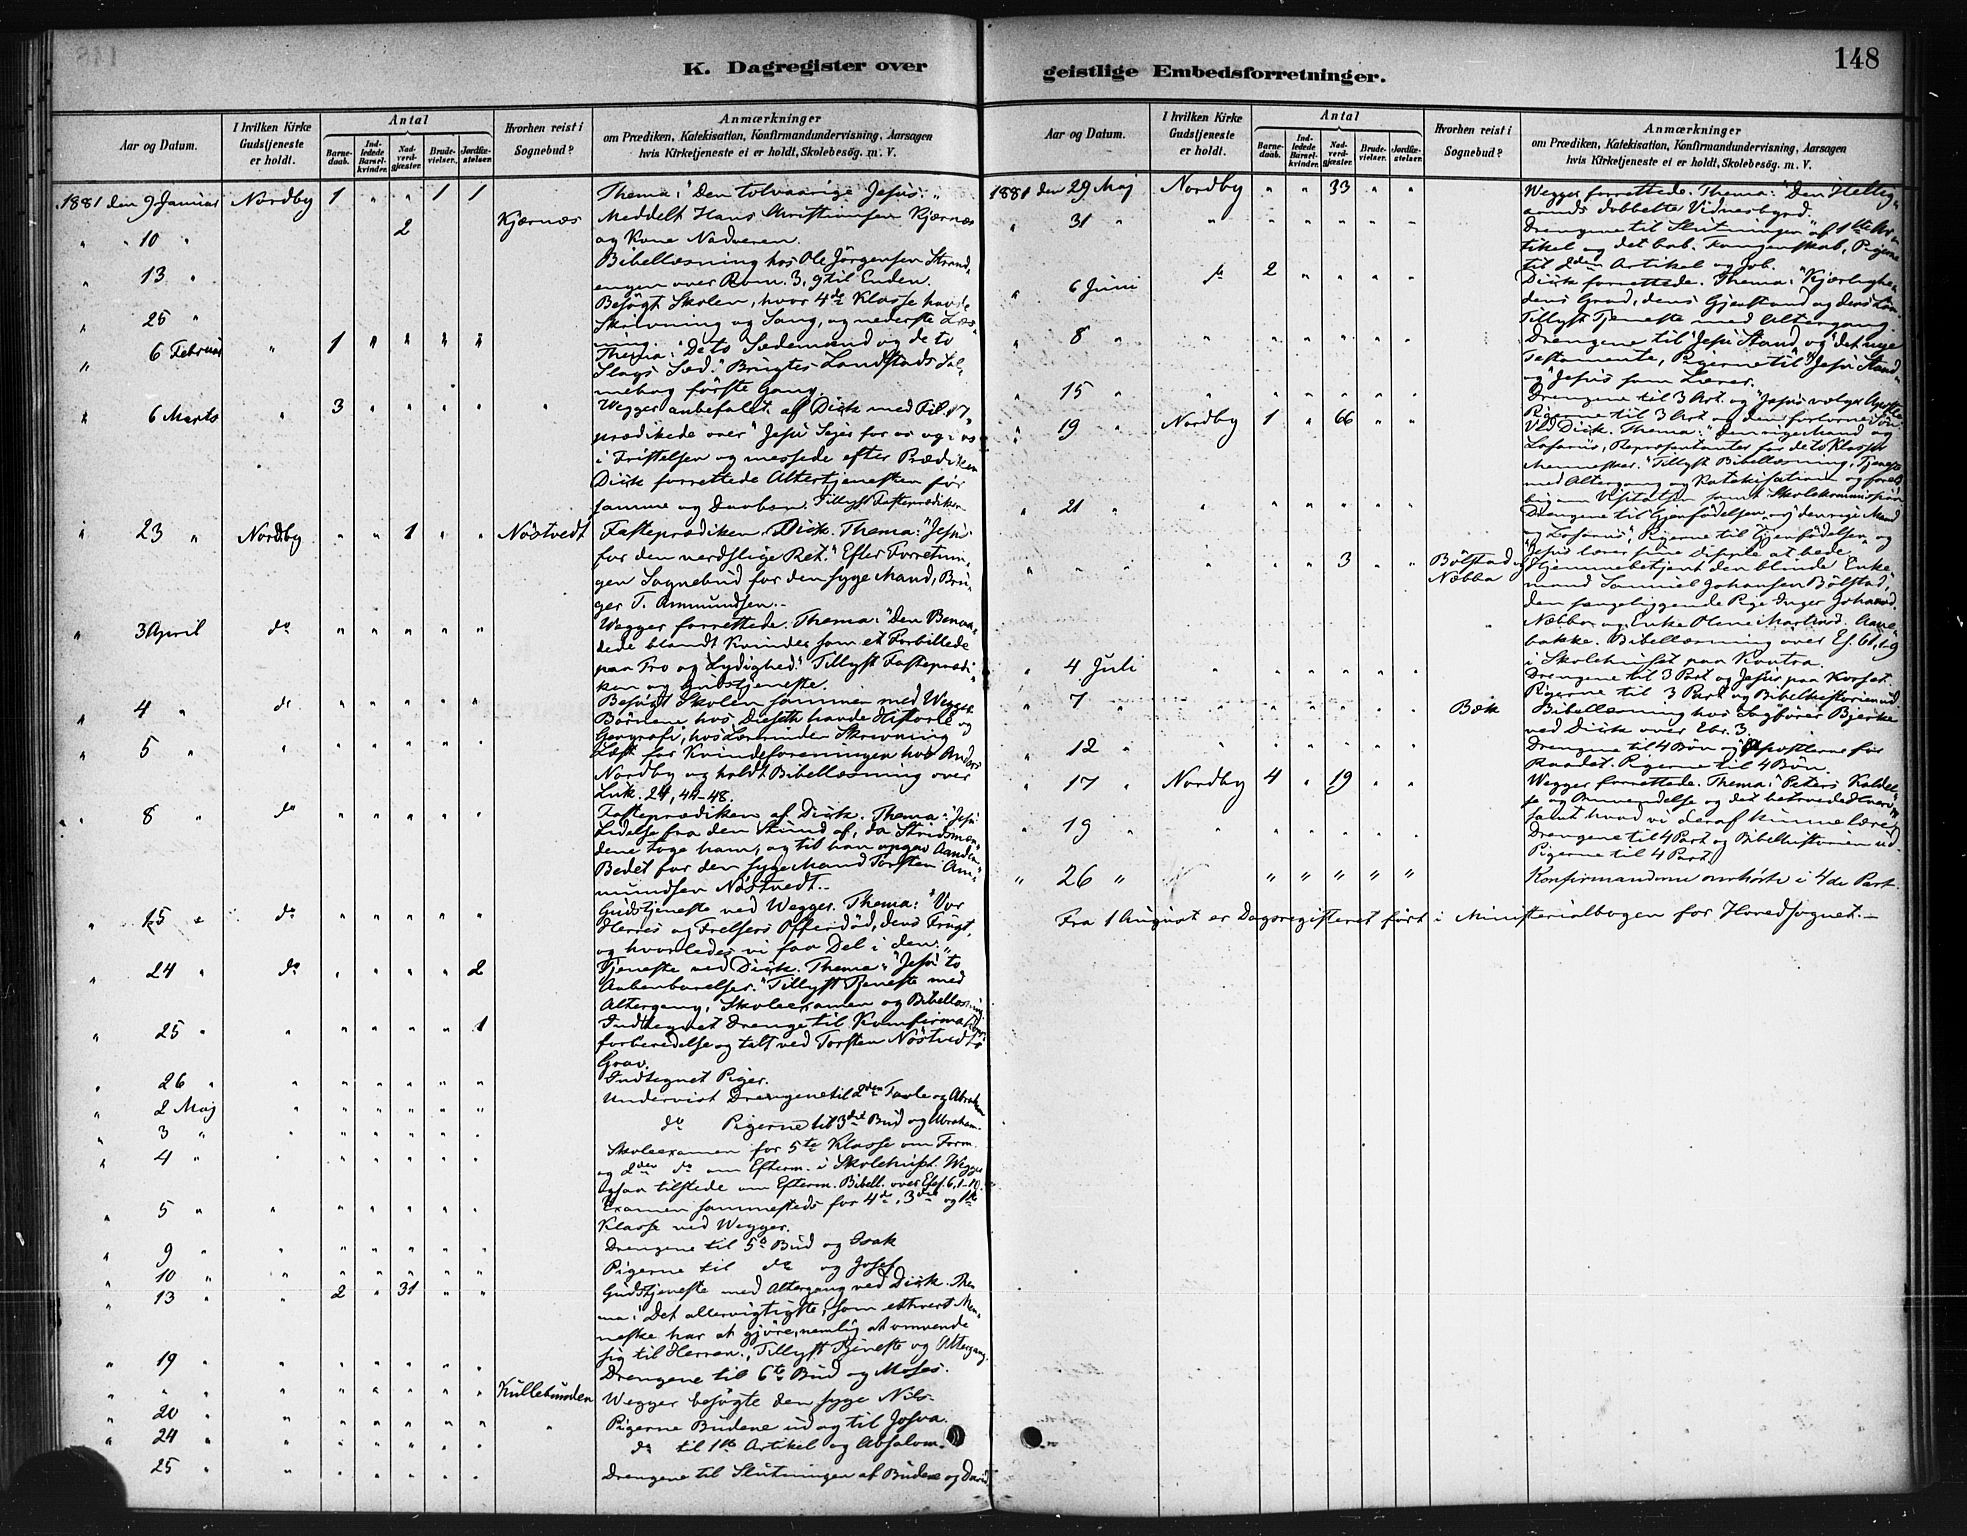 K. Dagregister over geistlige Embedsforretninger.
148
Aar og Datum.
I hvilken Kirke Gudstjeneste er holdt.
Antal
Barnedaab.
Indledede Barselkvinder.
Nadverdgjæster.
Brudevielser.
Jordfæstelser.
Hvorhen reist i Sognebud?
Anmærkninger
om Prædiken, Katekisation, Konfirmandundervisning, Aarsagen
hvis Kirketjeneste ei er holdt, Skolebesøg. m. V.
1881 den 9 Januar Nordby 1 " " 1 1 Thema: "Den tolvaarige Jesus."
" " 10 " 2 Kjærnæs Meddelt Hans Christiansen Kjærnæs
og Kone Nadveren.
" 13 " Bibellæsning hos Ole Jörgensen Strand-
engen over Rom. 3, 9 til Enden.
" 25 " Besögt Skolen, hvor 4de Klasse havde
Skrivning og Sang, og nederste Læs-
ning.
" 6 Februar " 1 " " " " Thema: "De to Sædemænd og de to
Slags Sæd." Brugtes Landstads Sal-
mebog förste Gang.
" 6 Marts " 3 " " " " " Wegger anbefalet af Disk med Fil.
prædikede over "Jesu Sejer for os og i os
i Fristelsen og messede efter Prædiken
Disk forrettede Altertjenesten før
samme og Daaben. Tillyst Fasteprædiken
" 23 " Nordby " " 1 " " Nöstvedt Fasteprædiken. Disk. Thema: "Jesus
for den verdslige Ret." Efter Forretnin-
gen Sognebud for den syge Mand, Bru-
ger T. Ammundsen.-
" 3 April do " " " " " Wegger forrettede. Thema: "Den Benaa-
dede blandt Kvinder som et Forbillede
paa Tro og Lydighed." Tillyst Fasteprædi-
ken og Gudstjeneste.
" 4 " do " " " " " Besögt Skolen sammen med Wegger.
Börnene hos Dieseth havde Historie og
Geografi, hos Lærerinden Skrivning
" 5 " " " " " " " Læst for Kvindeforeningen hos Anders
Nordby og holdt Bibellæsning over
Luk. 24, 44-48.
" 8 " do " " " " " Fasteprædiken af Disk. Thema: "Jesu
Lidelse fra den Stund af, da Stridsmæn-
dene toge ham, og til han opgav Aanden"
Bedet for den syge Mand Torsten Am-
mundsen Nöstvedt.-
" 15 " do " " " " " Gudstjeneste ved Wegger. Thema: "Vor
Herres og Frelsers Offerdöd, dens Frugt,
og hvorledes vi faa Del i den."
" 24 " do " " " " 2 Tjeneste ved Disk. Thema: "Jesu to
Aabenbarelser." Tillyst Tjeneste med
Altergang, Skoleexamen og Bibellæsning.
" 25 " " " " " " 1 Indtegnet Drenge til Konfirmations-
forberedelse og talt ved Torsten Nöstvedts
Grav.
" 26 " " " " " " " Indtegnet Piger.
" 2 Maj " " " " " " Undervist Drengene til 2den Tavle og Abraham
" 3 " " " " " " " do Pigerne til 3die Bud og Abraham.
" 4 " " " " " " " Skoleexamen for 5te Klasse om Form.
og 2den do om Efterm. i Skolehuset. Wegger
ogsaa tilstede om Efterm. Bibell. over Efes. 6, 1-10.
" 5 " " " " " " " Examen sammesteds for 4de, 3die og 1ste
Klasse ved Wegger.
" 9 " " " " " " " Drengene til 5te Bud og Isak
" 10 " " " " " " " Pigerne til do og Josef
" 13 " " 2 " 31 " " Gudstjeneste med Altergang ved Disk. The-
ma: "Det allervigtigste, som ethvert Men-
neske har at gjöre, nemlig at omvende
sig til Herren." Tillyst Tjeneste og Altergang.
" 19 " " " " " " " Drengene til 6te Bud og Moses.
" " " " " " " " " Kullebunden Wegger besögte den syge Nils.
" 20 " " " " " " " " Pigerne Budene ud og til Josva.
" 24 " " " " " " " do til 1ste Artikel og Absalom.
" 25 " " " " " " " Drengene til Slutningen af Budene og David
Aar og Datum.
I hvilken Kirke Gudstjeneste er holdt.
Antal
Barnedaab.
Indledede Barselkvinder.
Nadverdgjæster.
Brudevielser.
Jordfæstelser.
Hvorhen reist i Sognebud?
Anmærkninger
om Prædiken, Katekisation, Konfirmandundervisning, Aarsagen
hvis Kirketjeneste ei er holdt, Skolebesøg. m. V.
1881 den 29 Maj Nordby " " 33 " " Wegger forrettede. Thema: "Den Hellig-
aands dobbelte Vidnesbyrd."
" 31 " " " " " " " Drengene til Slutningen af 1ste Ar-
tikel og det bab. Fangenskab, Pigerne
til 2den Artikel og Job.
" 6 Juni do 2 " " " " Disk forrettede. Thema: "Kjærlighe-
dens Grad, dens Gjenstand og dens Lön
Tillyst Tjeneste med Altergang.
" 8 " " " " " " " Drengene til "Jesu Stand, og "det nye
Testamente, Pigerne til "Jesu Stand"
og "Jesus som Lærer.
" 15 " " " " " " " Drengene til 3 Art. og "Jesus vælger Apostle
Pigerne til 3 Art og den fortorne Sön
" 19 " Nordby 1 " 66 " " Ved Disk. Thema: "Den rige Mand og
Lasarus, Repræsentanter for de to Klasser
Mennesker." Tillyst Bibellæsning, Tjeneste
med Altergang og Katekisation og
Visitatsen samt Skolekommission
" 21 " " " " " " " Drengene til Gjenfödelsen og "den rige Mand
og Lasarus", Pigerne til Gjenfödelsen og
"Jesus lærer sine Disiple at bede."
" " " " " " 3 " " Bölstad og Næbba Hjemmebetjent den blinde Enke-
mand Samuel Johansen Bölstad,
den sengeliggende Pige Inger Johansd.
Næbba og Enke Oline Martinsd. Aane-
bakke. Bibellæsning over Es. 61, 1-9
i Skolehuset paa Kontra.
" 4 Juli " " " " " " Drengene til 3 Part og Jesus paa Korset.
Pigerne til 3 Part og Bibelhistorien ud
" 7 " " " " " " " Bæk Bibellæsning hos Sagförer Bjerke
ved Disk over Ebr. 3.
" 12 " " " " " " " Drengene til 4 Bön og Apostlerne for
Raadet. Pigerne til 4 Bön.
" 17 " Nordby 4 " 19 " " Wegger forrettede. Thema: "Peters Kaldel-
se og Omvendelse og det betroede Hverv
samt hvad vi deraf kunne lære"
" 19 " " " " " " " Drengene til 4 Part og Bibelhistorien ud.
Pigerne til 4 Part
" 26 " " " " " " Konfirmanderne overhörte i 4de Part.
Fra 1 August er Dagsregisteret fört i Ministerialbogen for Hovedsognet.-